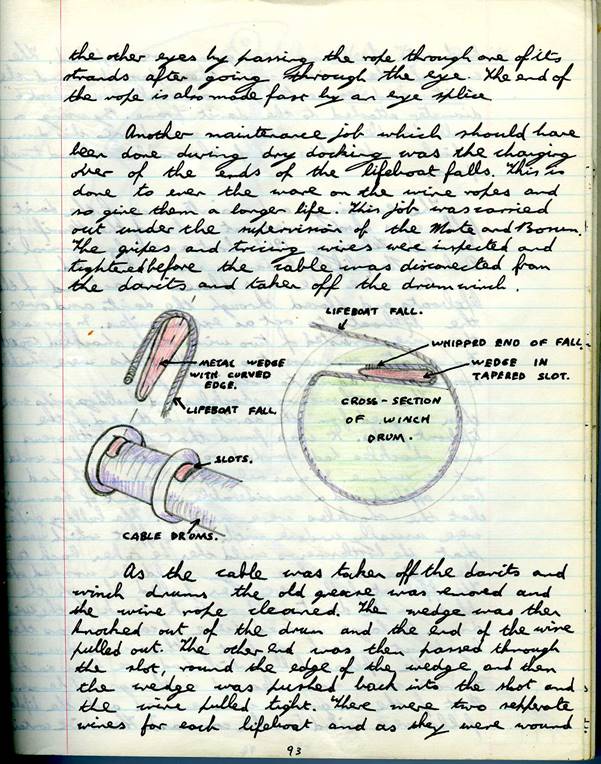 the other eyes by passing the rope through one of its
strands after going through the eye. The end of
the rope is also made fast by an eye splice
Another maintenance job which should have
been done during dry docking was the changing
over of the ends of the lifeboat falls. This is
done to even the ware on the wire ropes and
so give them a longer life. This job was carried
out under the supervision of the Mate and Bosun.
The gripes and tricing wires were inspected and
tightened before the cable was disconected from
the davits and taken off the drum winch.
LIFEBOAT FALL.
WHIPPED END OF FALL.
WEDGE IN
TAPERED SLOT.
METAL WEDGE
WITH CURVED
EDGE.
LIFEBOAT FALL.
CROSS-SECTION
OF WINCH
DRUM.
SLOTS.
CABLE DRUMS.
As the cable was taken off the davits and
winch drums the old grease was removed and
the wire rope cleaned. The wedge was then
knocked out of the drum and the end of the wire
pulled out. The other end was then passed through
the slot, round the edge of the wedge and then
the wedge was pushed back into the slot and
the wire pulled tight. There were two sepperate
wires for each lifeboat and as they were wound
93